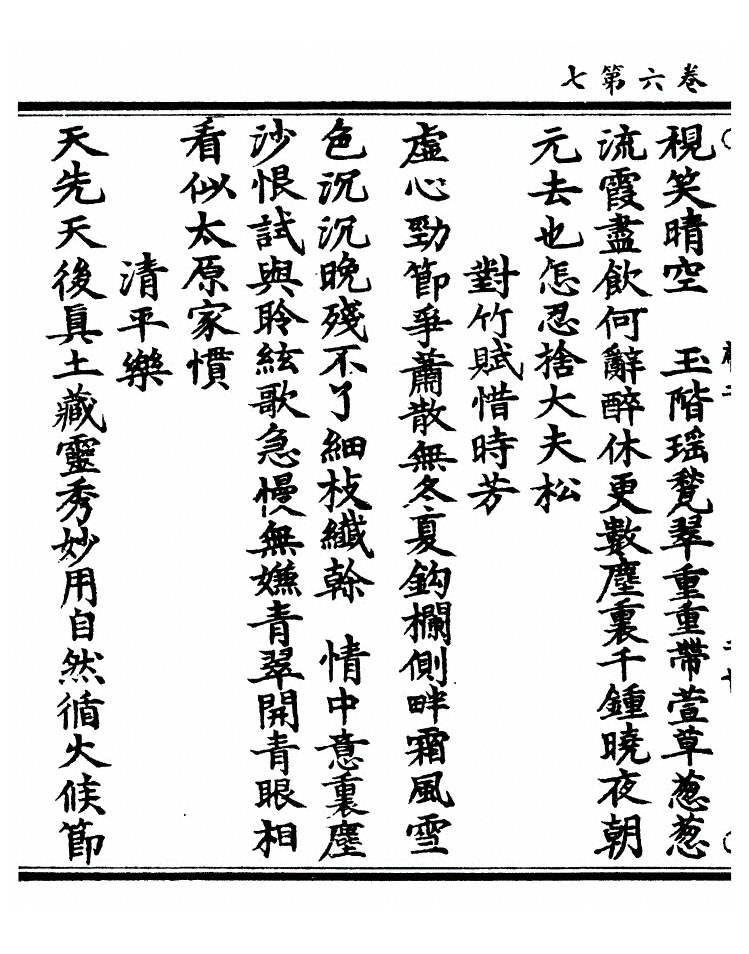 卷六第七
梘笑晴空　玉階瑶甃翠重重帶萱草葱葱
流霞盡飲何辭醉休更數塵裏千鍾曉夜朝
元去也怎忍捨大夫松
對竹賦惜時芳
虛心勁節爭蕭散無冬夏鈎欄側畔霜風雪
色沉沉晚殘不了細枝纖幹　情中意裏塵
沙恨試與聆絃歌急慢無嫌青翠開青眼相
看似太原家慣
清平樂
天先天後真土藏靈秀妙用自然循火候節